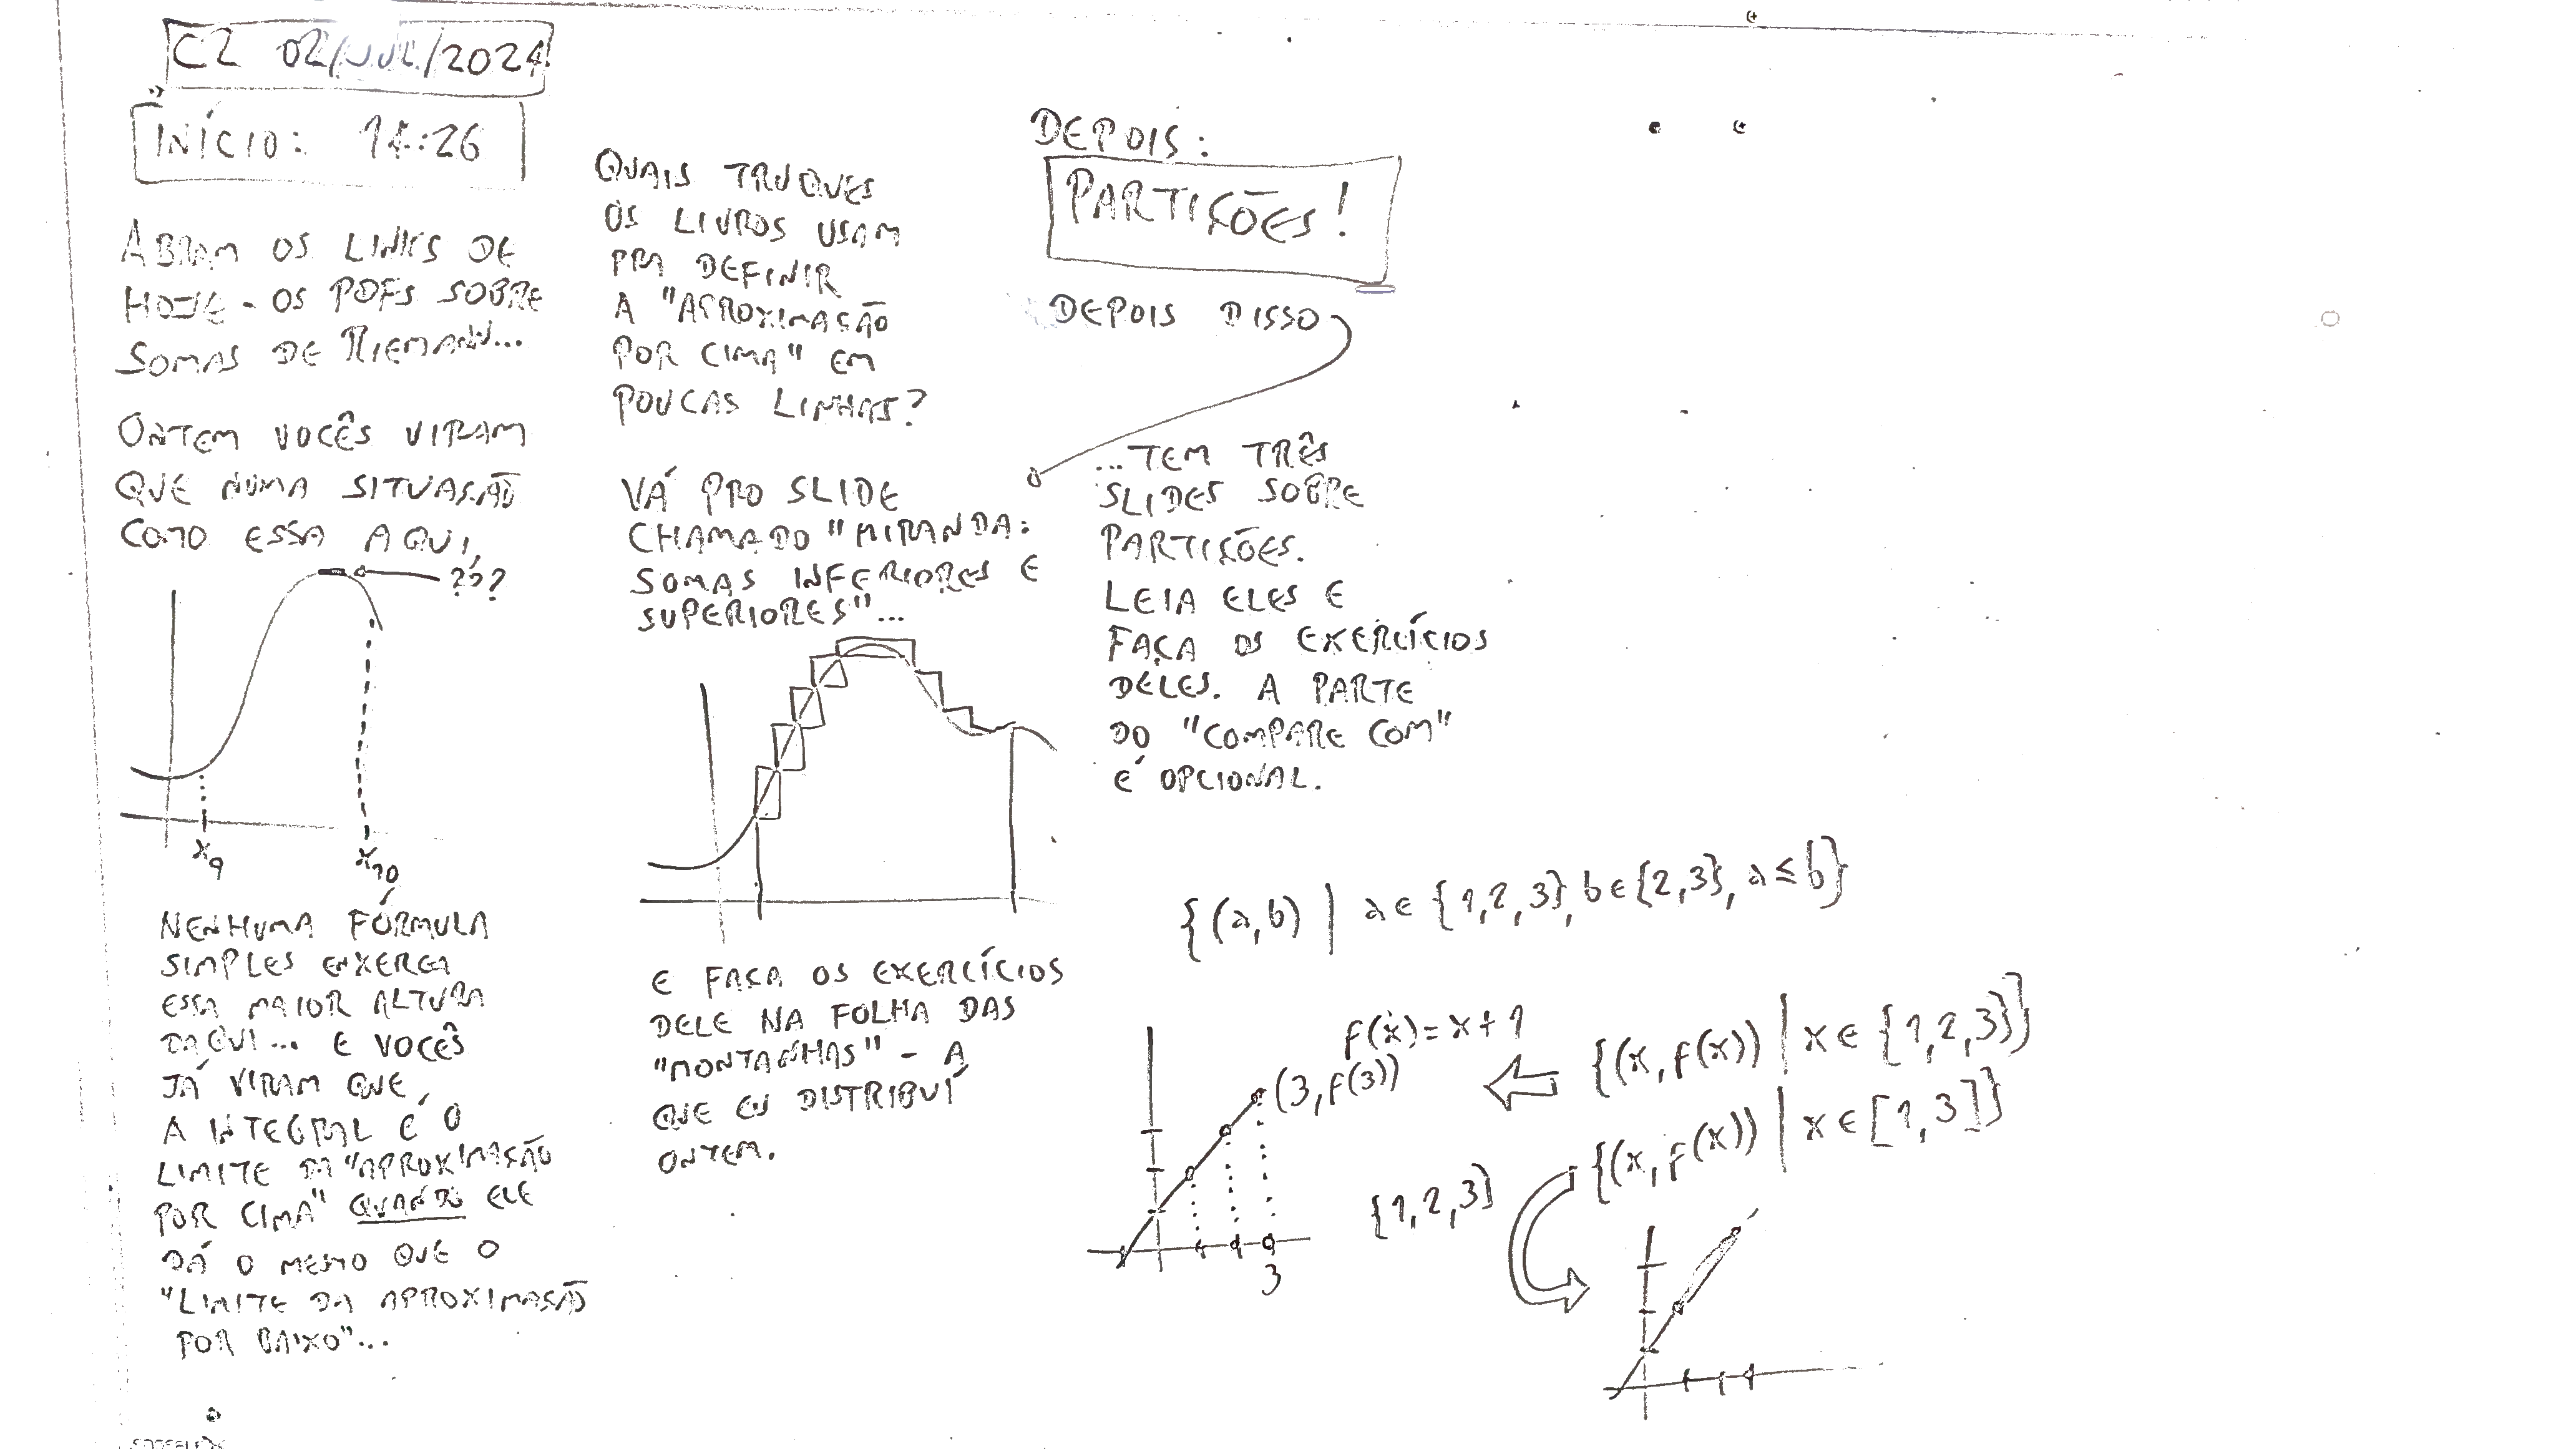 C2 02/JUL/2024
INÍCIO: 14:26
ABRAM OS LINKS DE
HOJE - OS PDFS SOBRE
SOMAS DE RIEMANN...
ONTEM VOCÊS VIRAM
QUE NUMA SITUAÇÃO
COMO ESSA AQUI,
???
x₉
x₁₀
NENHUMA FÓRMULA
SIMPLES ENXERGA
ESSA MAIOR ALTURA
DAQUI... E VOCÊS
JÁ VIRAM QUE
A INTEGRAL É O
LIMITE DA "APROXIMAÇÃO
POR CIMA" QUANDO ELE
DÁ O MESMO QUE O
"LIMITE DA APROXIMAÇÃO
POR BAIXO"...
QUAIS TRUQUES
OS LIVROS USAM
PRA DEFINIR
A "APROXIMAÇÃO
POR CIMA" EM
POUCAS LINHAS?
VÁ PRO SLIDE
CHAMADO "MIRANDA:
SOMAS INFERIORES E
SUPERIORES"...
E FAÇA OS EXERCÍCIOS
DELE NA FOLHA DAS
"MONTANHAS" - A
QUE EU DISTRIBUÍ
ONTEM.
DEPOIS:
PARTIÇÕES!
DEPOIS DISSO
...TEM TRÊS
SLIDES SOBRE
PARTIÇÕES.
LEIA ELES E
FAÇA OS EXERCÍCIOS
DELES. A PARTE
DO "COMPARE COM"
É OPCIONAL.
{(a,b) | a ∈ {1,2,3}, b ∈ {2,3}, a ≤ b}
f(x) = x + 1
(3, f(3))
{(x, f(x)) | x ∈ {1,2,3}}
{(x, f(x)) | x ∈ [1,3]}
{1,2,3}
3